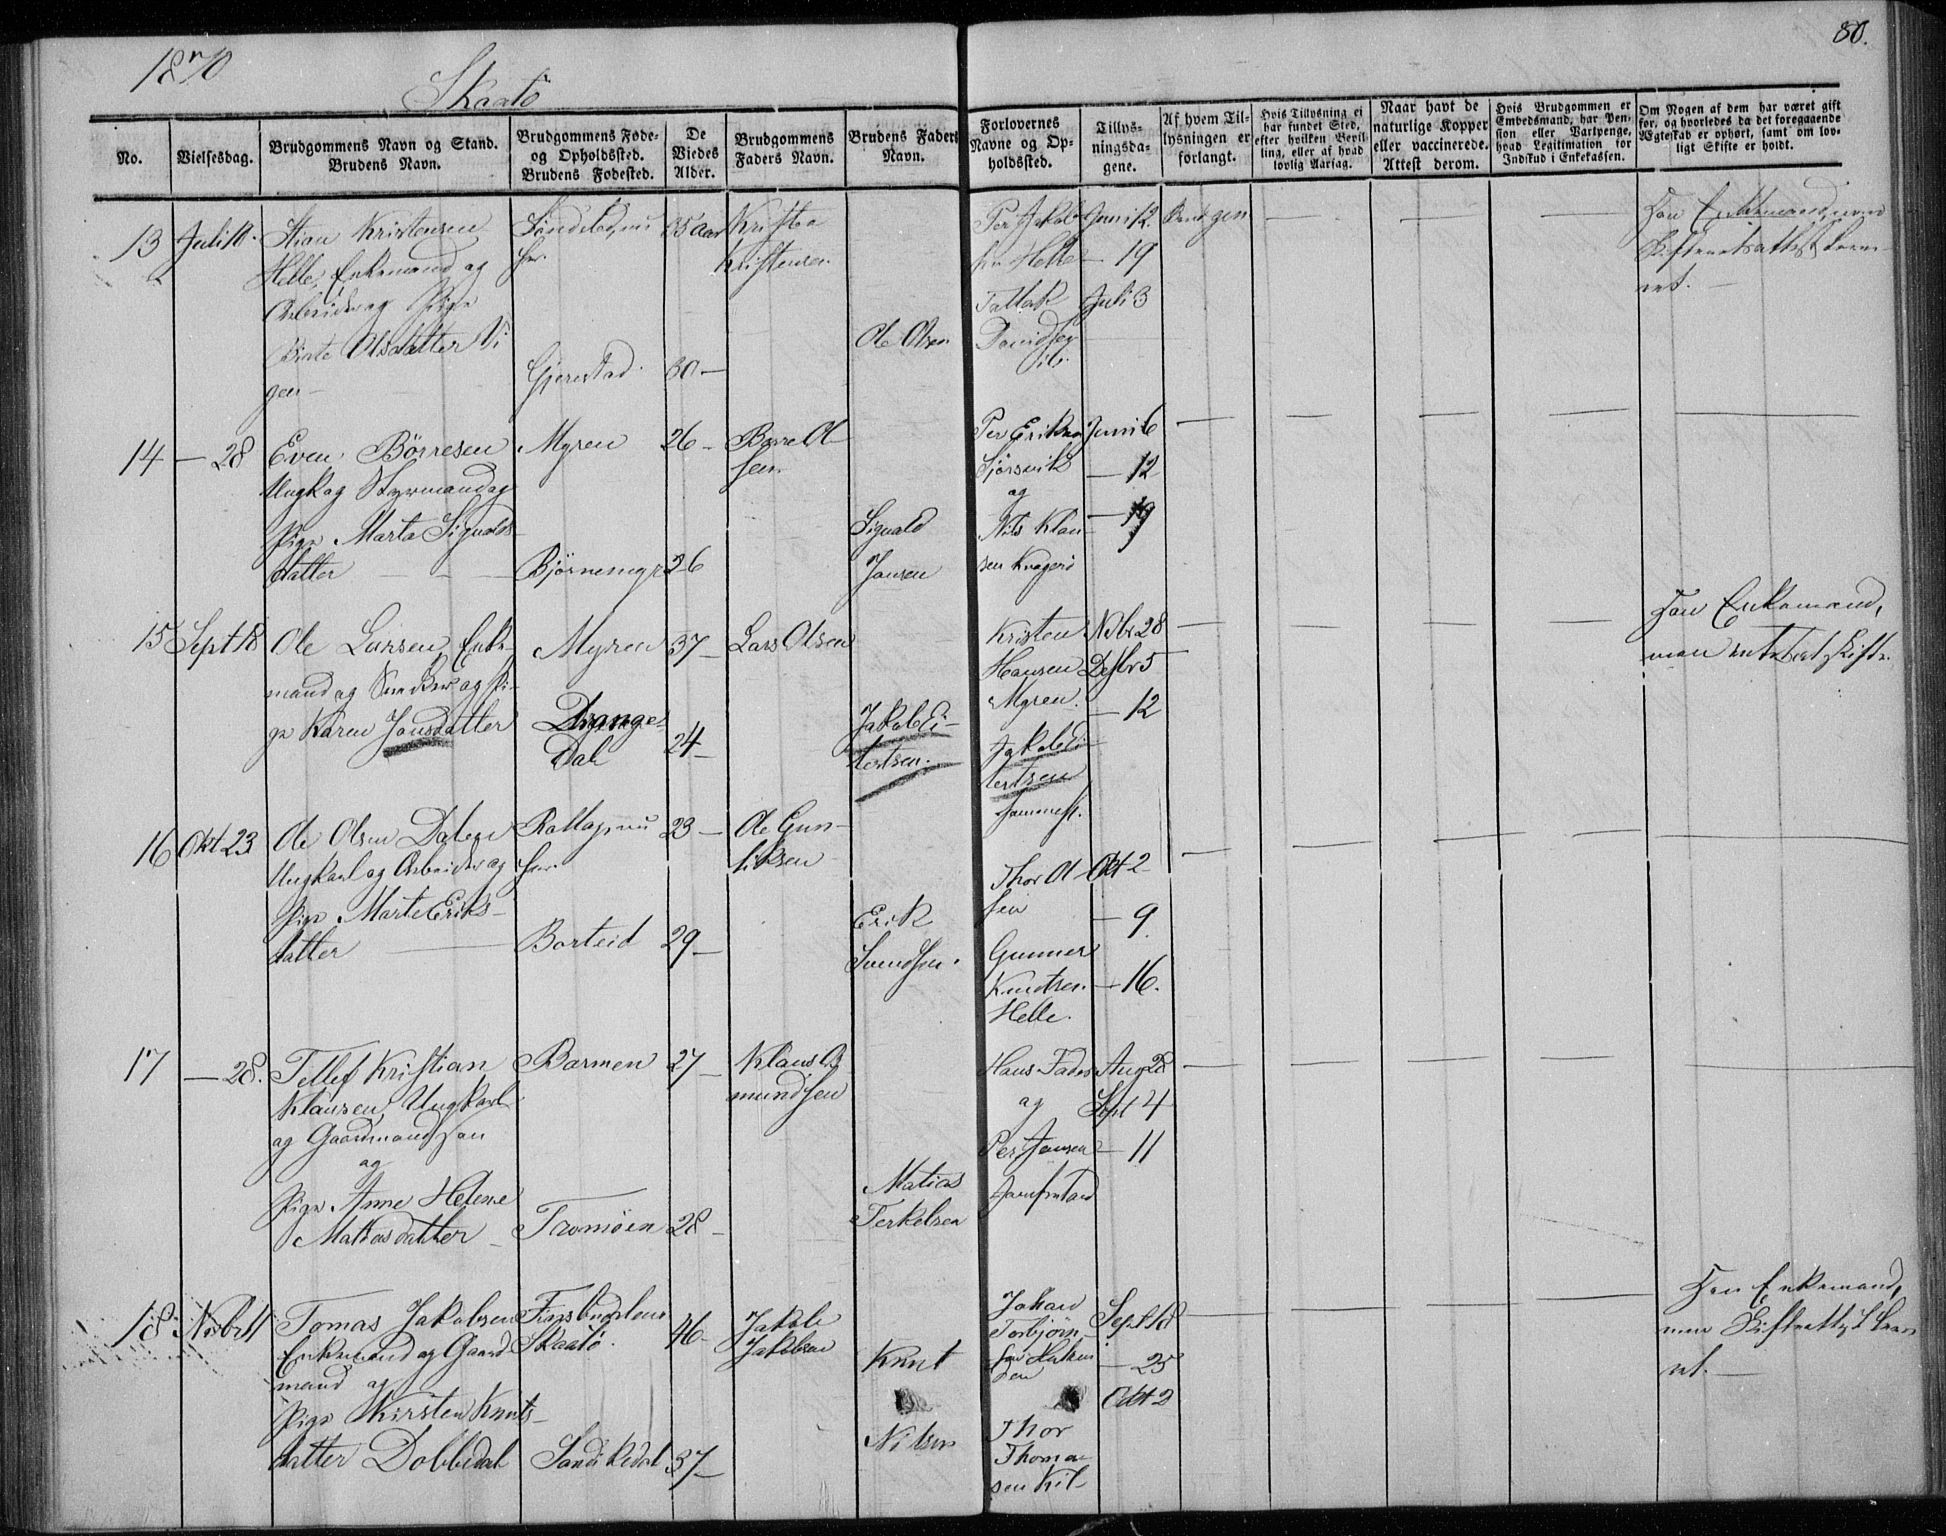 1870
Skaatö
80.
No.
Vielsesdag.
Brudgommens Navn og Stand.
Brudens Navn.
Brudgommens Føde-
og Opholdssted.
Brudens Fødested.
De
Viedes
Alder.
Brudgommens
Faders Navn.
Brudens Faders
Navn.
Forlovernes
Navne og Op-
holdssted.
Tillys-
ningsda-
gene.
Af hvem Til-
lysningen er
forlangt.
Hvis Tillysning ei
har fundet Sted,
efter hvilken Bevil-
ling, eller af hvad
lovlig Aarsag.
Naar havt de
naturlige Kopper
eller vaccinerede.
Attest derom.
Hvis Brudgommen er
Embedsmand, har Pen-
sion eller Vartpenge,
hvad Legitimation for
Indskud i Enkekassen.
Om Nogen af dem har været gift
før, og hvorledes da det foregaaende
Ægteskab er ophørt, samt om lov-
ligt Skifte er holdt.
13 Juli 10.
Stian Kristensen
Helle, Enkemand og
Arbeider og Pige
Olsdatter Vi
gen —
Søndeled, nu
her.
Gjerestad.
35 Aar
30 —
Kristen
Kristensen
Ole Olsen
Per Jakob-
sen Helle
Tallak
Davidsen
ib.
Juni 12.
— 19
Juli 3
Han Enkemand,
14 — 28
Even Børresen
Ungk og Styrmand og
Pige Marta Sigvalds-
datter — — —
Myren
Bjørnemyr
26 —
26
Børre Ol-
sen
Sigvald
Jansen
Per Eriksen
Sjørsvik
og
Nils Klau-
sen Kragerö
Juni 6
— 12
— 19
15 Sept 18
Ole Larsen, Enke-
mand og Snedker og Pi-
ge Karen Jansdatter
Myren
Drange-
Dal
37 —
24 —
Lars Olsen
Jakob Ei-
lertsen.
Kristen
Hansen
Myren.
Jakob Ei-
lertsen
sammest.
Nvbr 28
Desbr 5
— 12
Han Enkemand,
16 Okt 23
Ole Olsen Dalen
Ungkarl og Arbeider og
Pige Marte Eriks-
datter —
Rollag, nu
her.
Borteid
23 —
29 —
Ole Gun-
liksen
Erik
Svendsen.
Thor Ol-
sen
Gunner
Knudtsen
Helle.
Okt 2
— 9
— 16.
17 — 28.
Tellef Kristian
Klausen, Ungkarl
og Gaardmandssøn
og
Pige Anne Helene
Mathisdatter —
Barmen
Tavmöen
27 —
28 —
Klaus A-
mundsen
Matias
Terkelsen
Hans Fades
og
Per Jansen
Jomfruland
Aug 28
Sept 4
— 11
18 Novbr 11
Tomas Jakobsen
Enkemand og Gaard
mand og
Pige Kirsten Knuts-
datter Dobbedal
Skaatö.
Sandikedal
46 —
37 —
Jakob
Jakobsen
Knut
Nilsen
Johan
Torbjørn-
sen
Thor
Thoma-
sen Kil-
Sept 18
— 25
Okt 2
Han Enkemand,